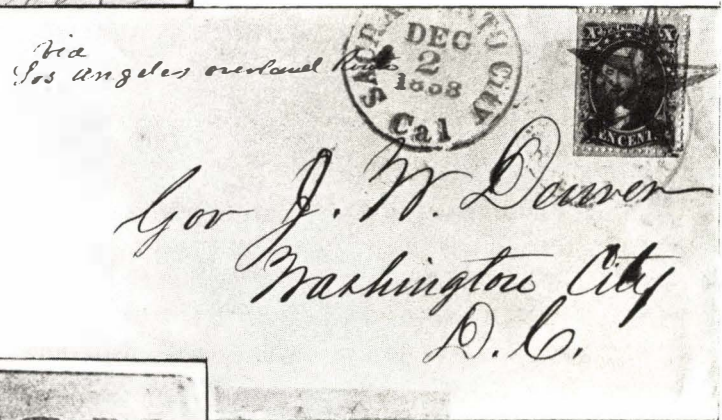 via
Los Angeles overland Route
SACRAMENTO City
DEC
2
1858
Cal
X X
TEN CENTS
Gov J. W. Denver
Washington City
D. C.